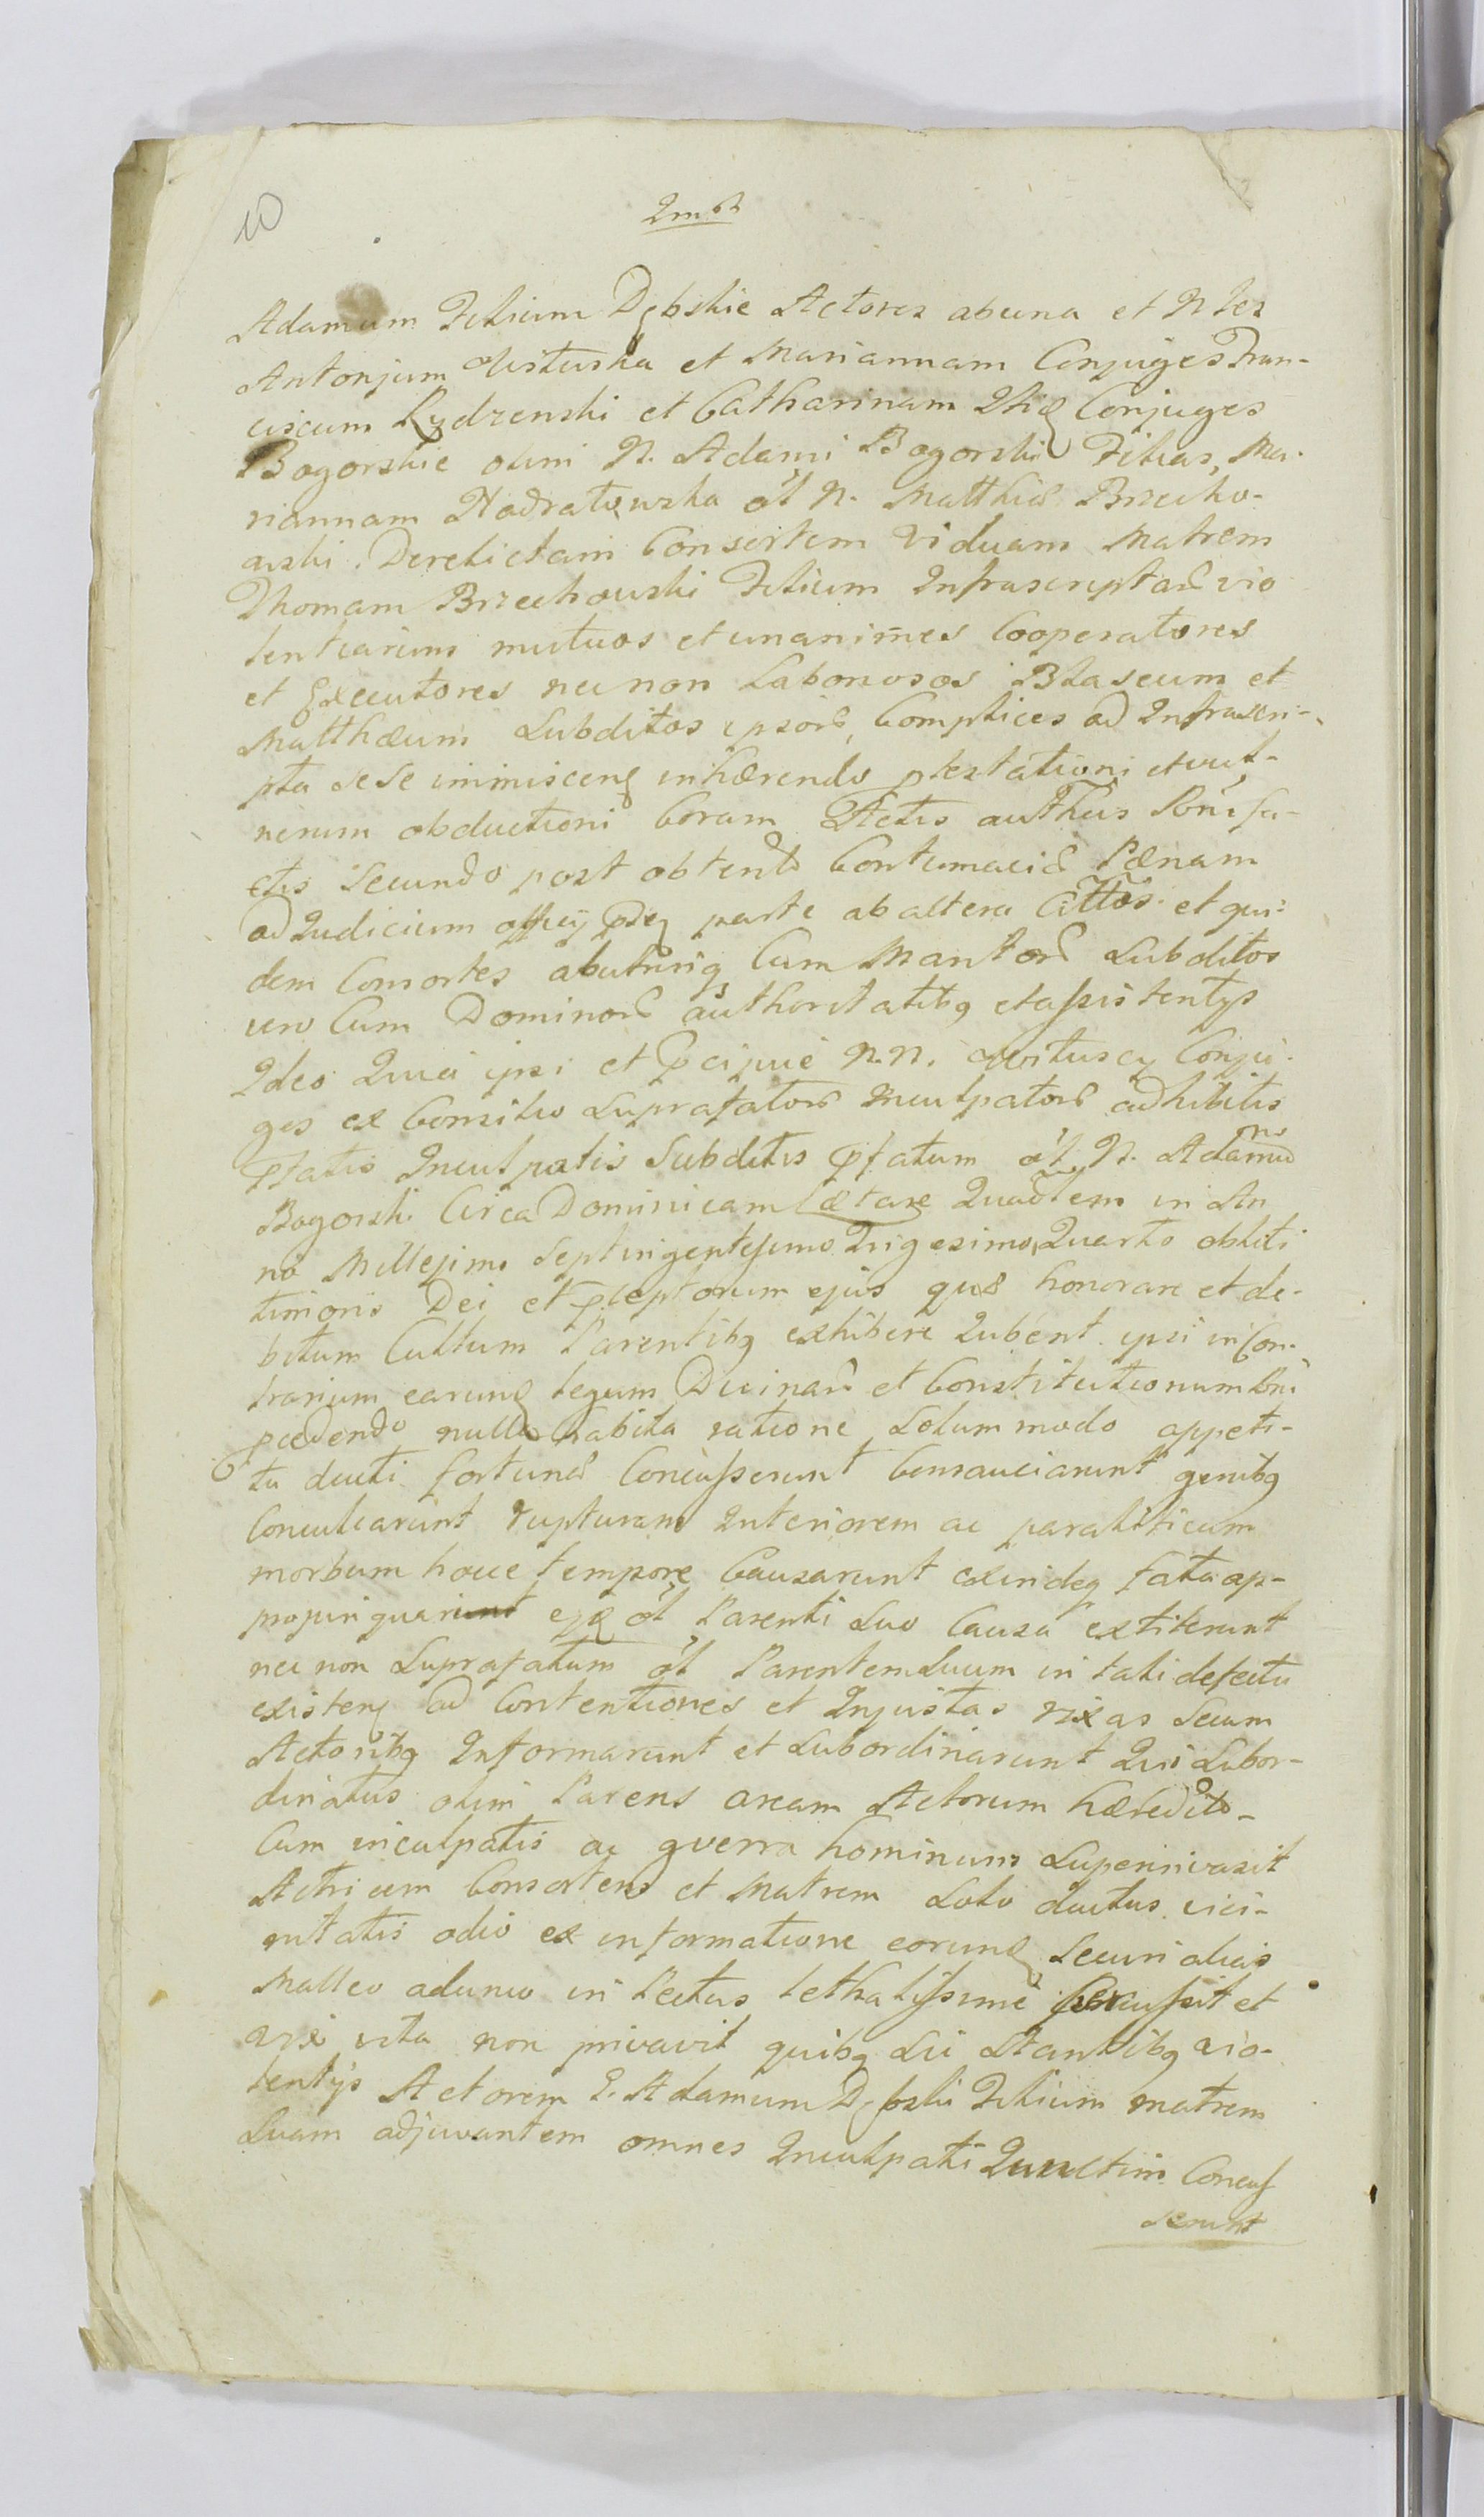 10
Adamum Filium Dębskie Actores ab una et N Nes
Antonjum et Mariannam Conjuges Fran-
ciscum Rydzenski et Catharinam Conjuges
Bogorskie olim N. Adami Bogorski Filias, Ma-
riannam ol N. Matthiæ Brzecho-
wski Derelictam Consortem Viduam Matrem
Thomam Brzechowski Filium Infrascriptar vio
lentiarum mutuos et unanimes Cooperatores
et Executores nec non Laboriosos Blaseum et
Matthæum Subditos ipsor Complices ad Infrascri-
pta sese immiscen inhærendo ptestationi et vul-
nerum obductioni Coram Actis authcis
ctis Secundo post obtent Contumaciæ Pænam
ad Judicium officij parte ab altera Cittos et qui-
dem Consortes Cum Maritor Subditos
vero Cum Dominor authoritatibq et assistentijs
Ideo Quia ipsi et pcipue N.N. Conju-
ges ex Consilio Suprafator Inculpator adhibitis
pfatis Inculpatis Subditis pfatum ol N. Adamum
Bogorski Circa Dominicam Lætare Quadlem in An
no Millesimo Septingentesimo Trigesimo Quarto obliti
timoris Dei et pceptorum ejus quæ honorare et de-
bitum Cultum Parentibq exhibere Jubent ipsi in Con-
trarium earund legum Divinar et Constitutionum
pcedendo nulla habita ratione Solummodo appeti-
tu ducti fortunæ Concusserunt Consauciarunt genibq
Conculcarunt rupturam Interiorem ac paraliticum
morbum hocce tempore Causarunt exindeq fata ap-
propinquarunt ol Parenti Suo Causa extiterunt
nec non Suprafatum ol Parentem Suum in tali defectu
existen ad Contentiones et Injustas rixas Secum
Actoribq Informarunt et Subordinarunt Qui Subor-
dinatus olim Parens aream Actorum hæredit-
Cum inculpatis ac guerra hominum Superinvasit
Actricem Consortem et Matrem Solo ductus vici-
nitatis odio ex informatione eorund Securi alias
Malleo adunco in Pectus lethalissime percussit et
vix vita non privavit quibq Sic Stantibq vio-
lentijs Actorem G. Adamum Dębski Filium matrem
Suam adjuvantem omnes Inculpati Junctim Concus
serunt